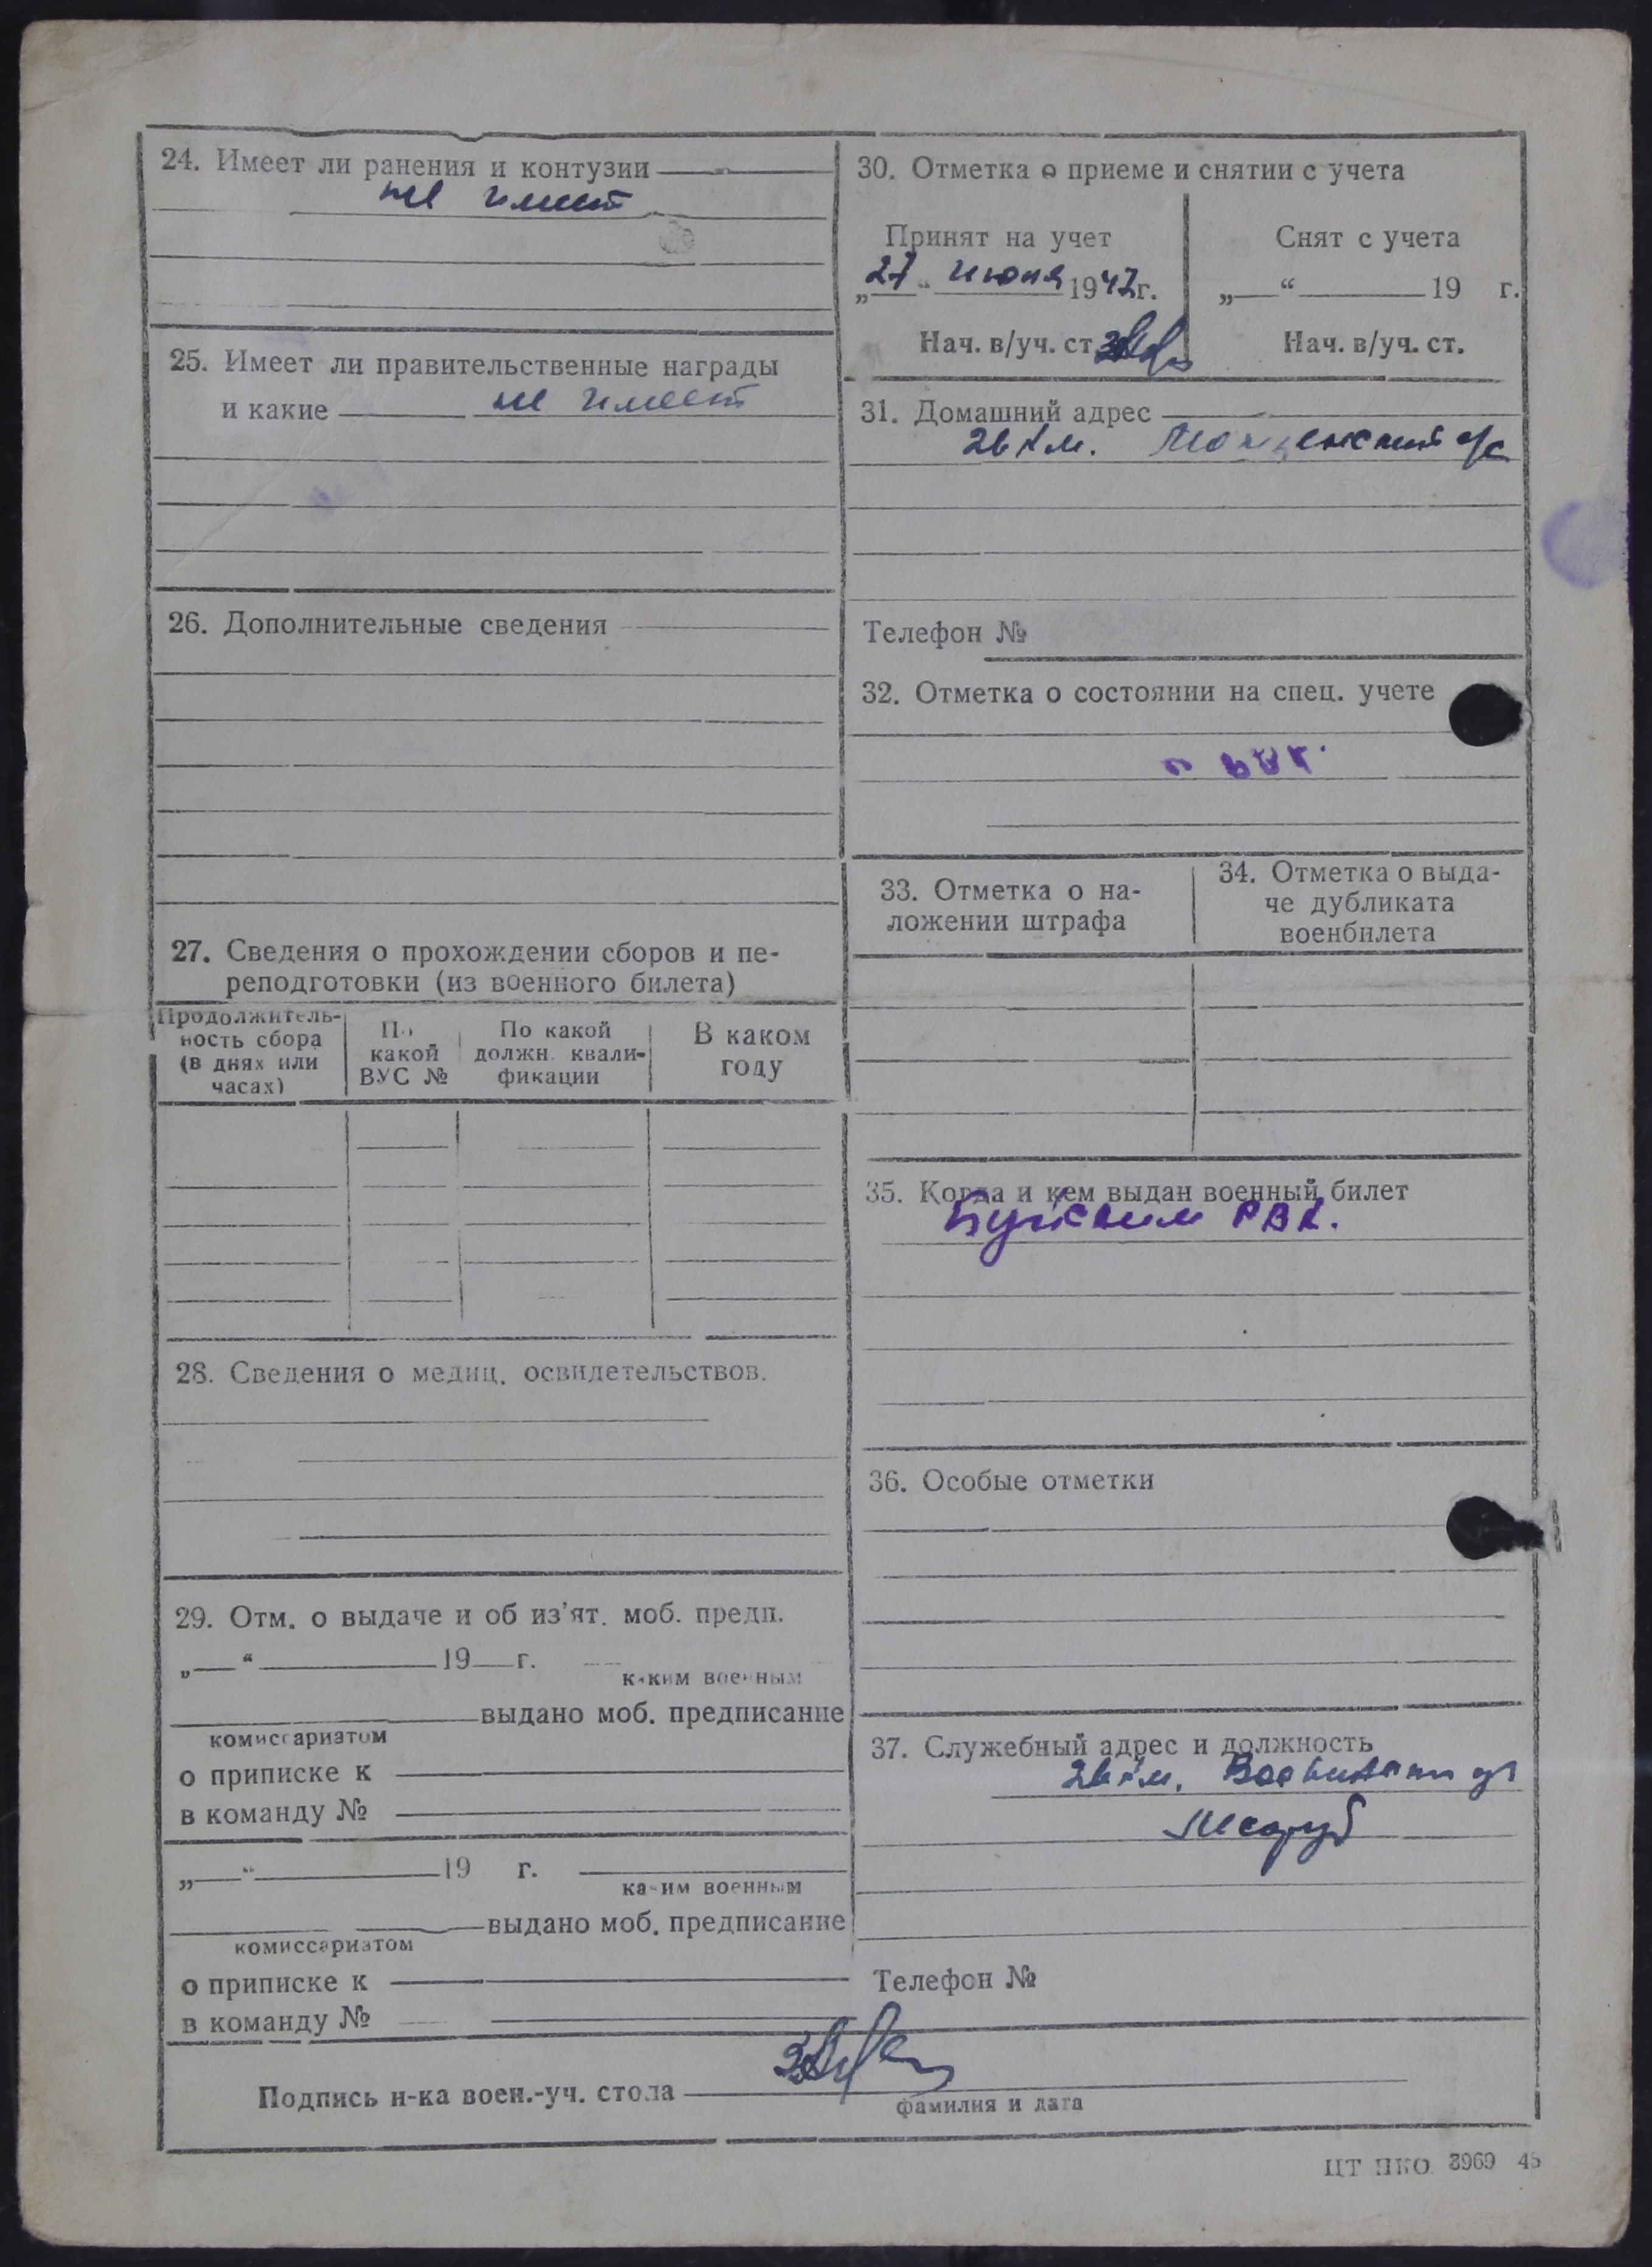 24. Имеет ли ранения и контузии
не имеет
25. Имеет ли правительственные награды
и какие не имеет
26. Дополнительные сведения
27. Сведения о прохождении сборов и пе-
реподготовки (из военного билета)
Продолжитель-
ность сбора
(в днях или
часах)
По
какой
ВУС №
По какой
должн. квали-
фикации
В каком
году
28. Сведения о медиц. освидетельствов.
29. Отм. о выдаче и об из'ят. моб. предп.
„ “ 19 г.
каким военным
выдано моб. предписание
комиссариатом
о приписке к
в команду №
„ “ 19 г.
каким военным
выдано моб. предписание
комиссариатом
о приписке к
в команду №
30. Отметка о приеме и снятии с учета
Принят на учет
„27“ июня 1947г.
Нач. в/уч. ст.
Снят с учета
„ “ 19 г.
Нач. в/уч. ст.
31. Домашний адрес
26 км.
Телефон №
32. Отметка о состоянии на спец. учете
33. Отметка о на-
ложении штрафа
34. Отметка о выда-
че дубликата
военбилета
35. Когда и кем выдан военный билет
Буйским РВК.
36. Особые отметки
37. Служебный адрес и должность
26 км.
Телефон №
Подпись н-ка воен.-уч. стола
фамилия и дата
ЦТ НКО 3969 45